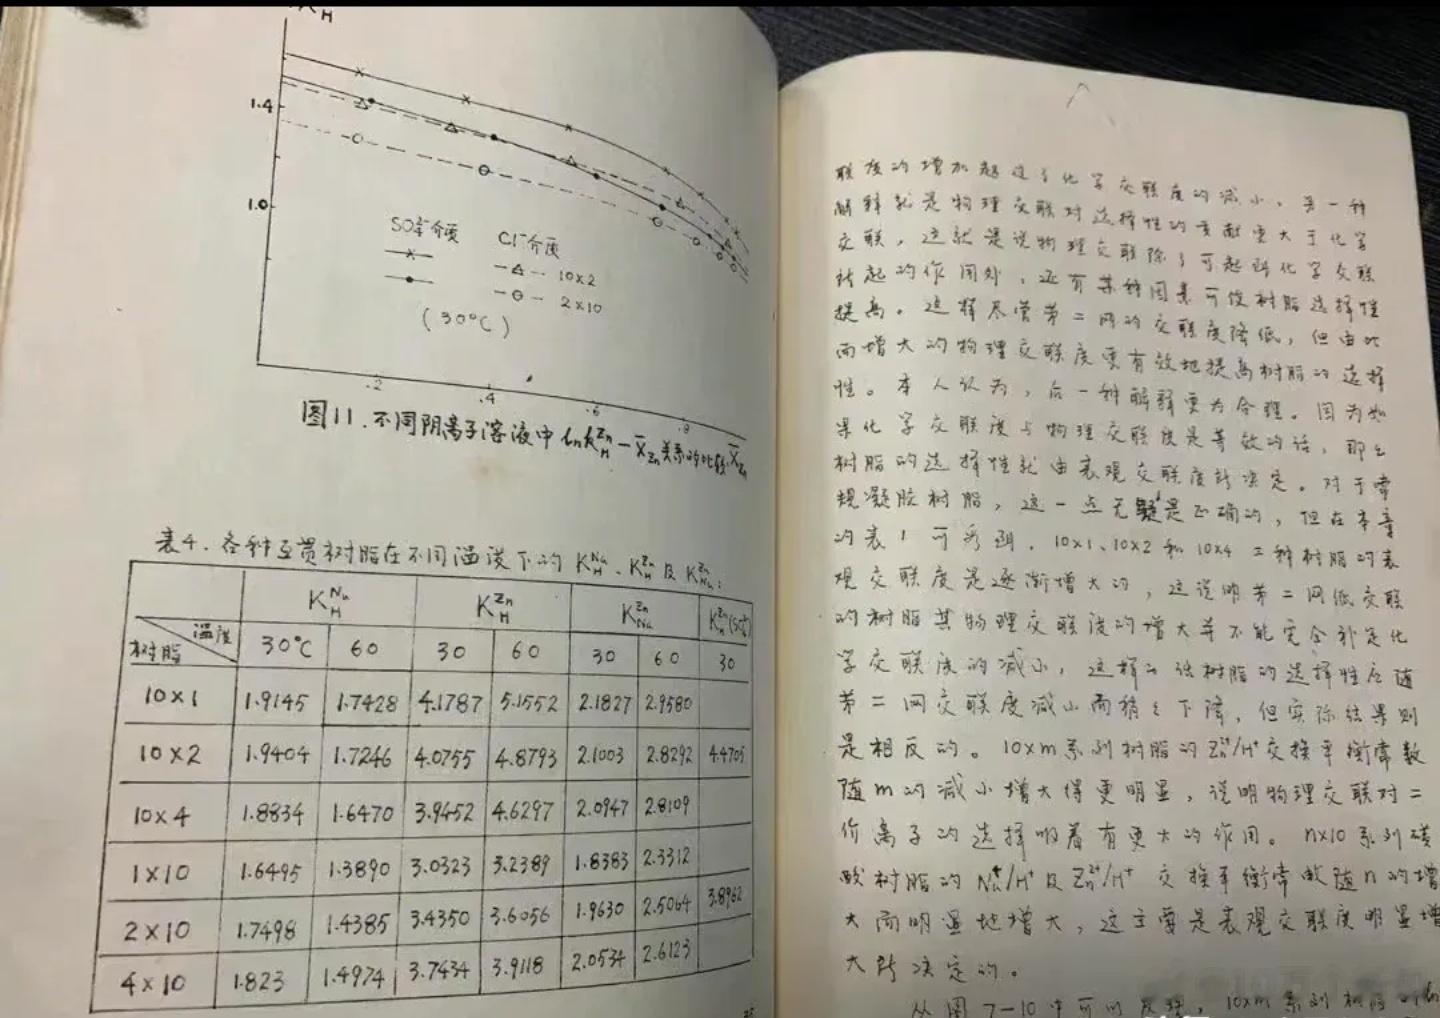 1.4
1.0
SO₄²⁻介质 Cl⁻介质
10×2
2×10
(30℃)
.2 .4 .6 .8
图11.不同阴离子溶液中lnK_H^Zn—X̄_Zn关系的比较 X̄_Zn
表4.各种互贯树脂在不同温度下的K_H^Na、K_H^Zn及K_Na^Zn:
K_H^Na K_H^Zn K_Na^Zn K_H^Zn(SO₄²⁻)
温度
树脂 30℃ 60 30 60 30 60 30
10×1 1.9145 1.7428 4.1787 5.1552 2.1827 2.9580
10×2 1.9404 1.7246 4.0755 4.8793 2.1003 2.8292 4.4705
10×4 1.8834 1.6470 3.9452 4.6297 2.0947 2.8109
1×10 1.6495 1.3890 3.0323 3.2389 1.8383 2.3312
2×10 1.7498 1.4385 3.4350 3.6056 1.9630 2.5064 3.8962
4×10 1.823 1.4974 3.7434 3.9118 2.0534 2.6123
联度的增加超过了化学交联度的减小,另一种
解释就是物理交联对选择性的贡献更大于化学
交联,这就是说物理交联除了可起到化学交联
所起的作用外,还有某种因素可使树脂选择性
提高。这样尽管第二网的交联度降低,但由此
而增大的物理交联度更有效地提高树脂的选择
性。本人认为,后一种解释更为合理。因为如
果化学交联度与物理交联度是等效的话,那么
树脂的选择性就由表观交联度所决定。对于常
规凝胶树脂,这一点无疑是正确的,但在本章
的表1可看到,10×1、10×2和10×4三种树脂的表
观交联度是逐渐增大的,这说明第二网低交联
的树脂其物理交联度的增大并不能完全补足化
学交联度的减小,这样二价树脂的选择性应随
第二网交联度减小而稍稍下降,但实际结果则
是相反的。10×m系列树脂的Zn²⁺/H⁺交换平衡常数
随m的减小增大得更明显,说明物理交联对二
价离子的选择吸着有更大的作用。n×10系列磺
酸树脂的Na⁺/H⁺及Zn²⁺/H⁺交换平衡常数随n的增
大而明显地增大,这主要是表观交联度明显增
大所决定的。
从图7—10中可以发现,10×m系列树脂的